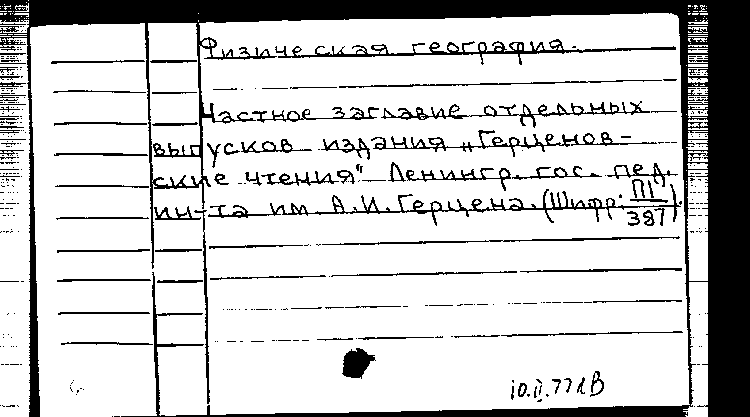 Физическая география.
Частное заглавие отдельных
выпусков издания „Герценов-
ские чтения" Ленингр. гос. пед.
ин-та им. А.И. Герцена. (Шифр: П1/387).
10.II.77